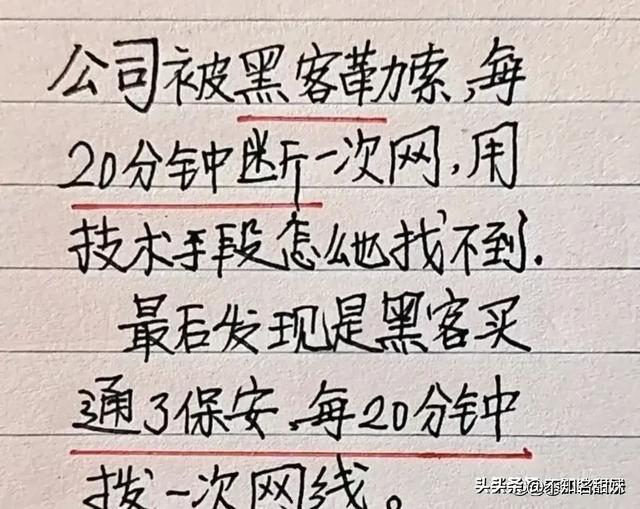 公司被黑客勒索,每
20分钟断一次网,用
技术手段怎么也找不到.
最后发现是黑客买
通了保安,每20分钟
拨一次网线。
头条@不知名甜妹